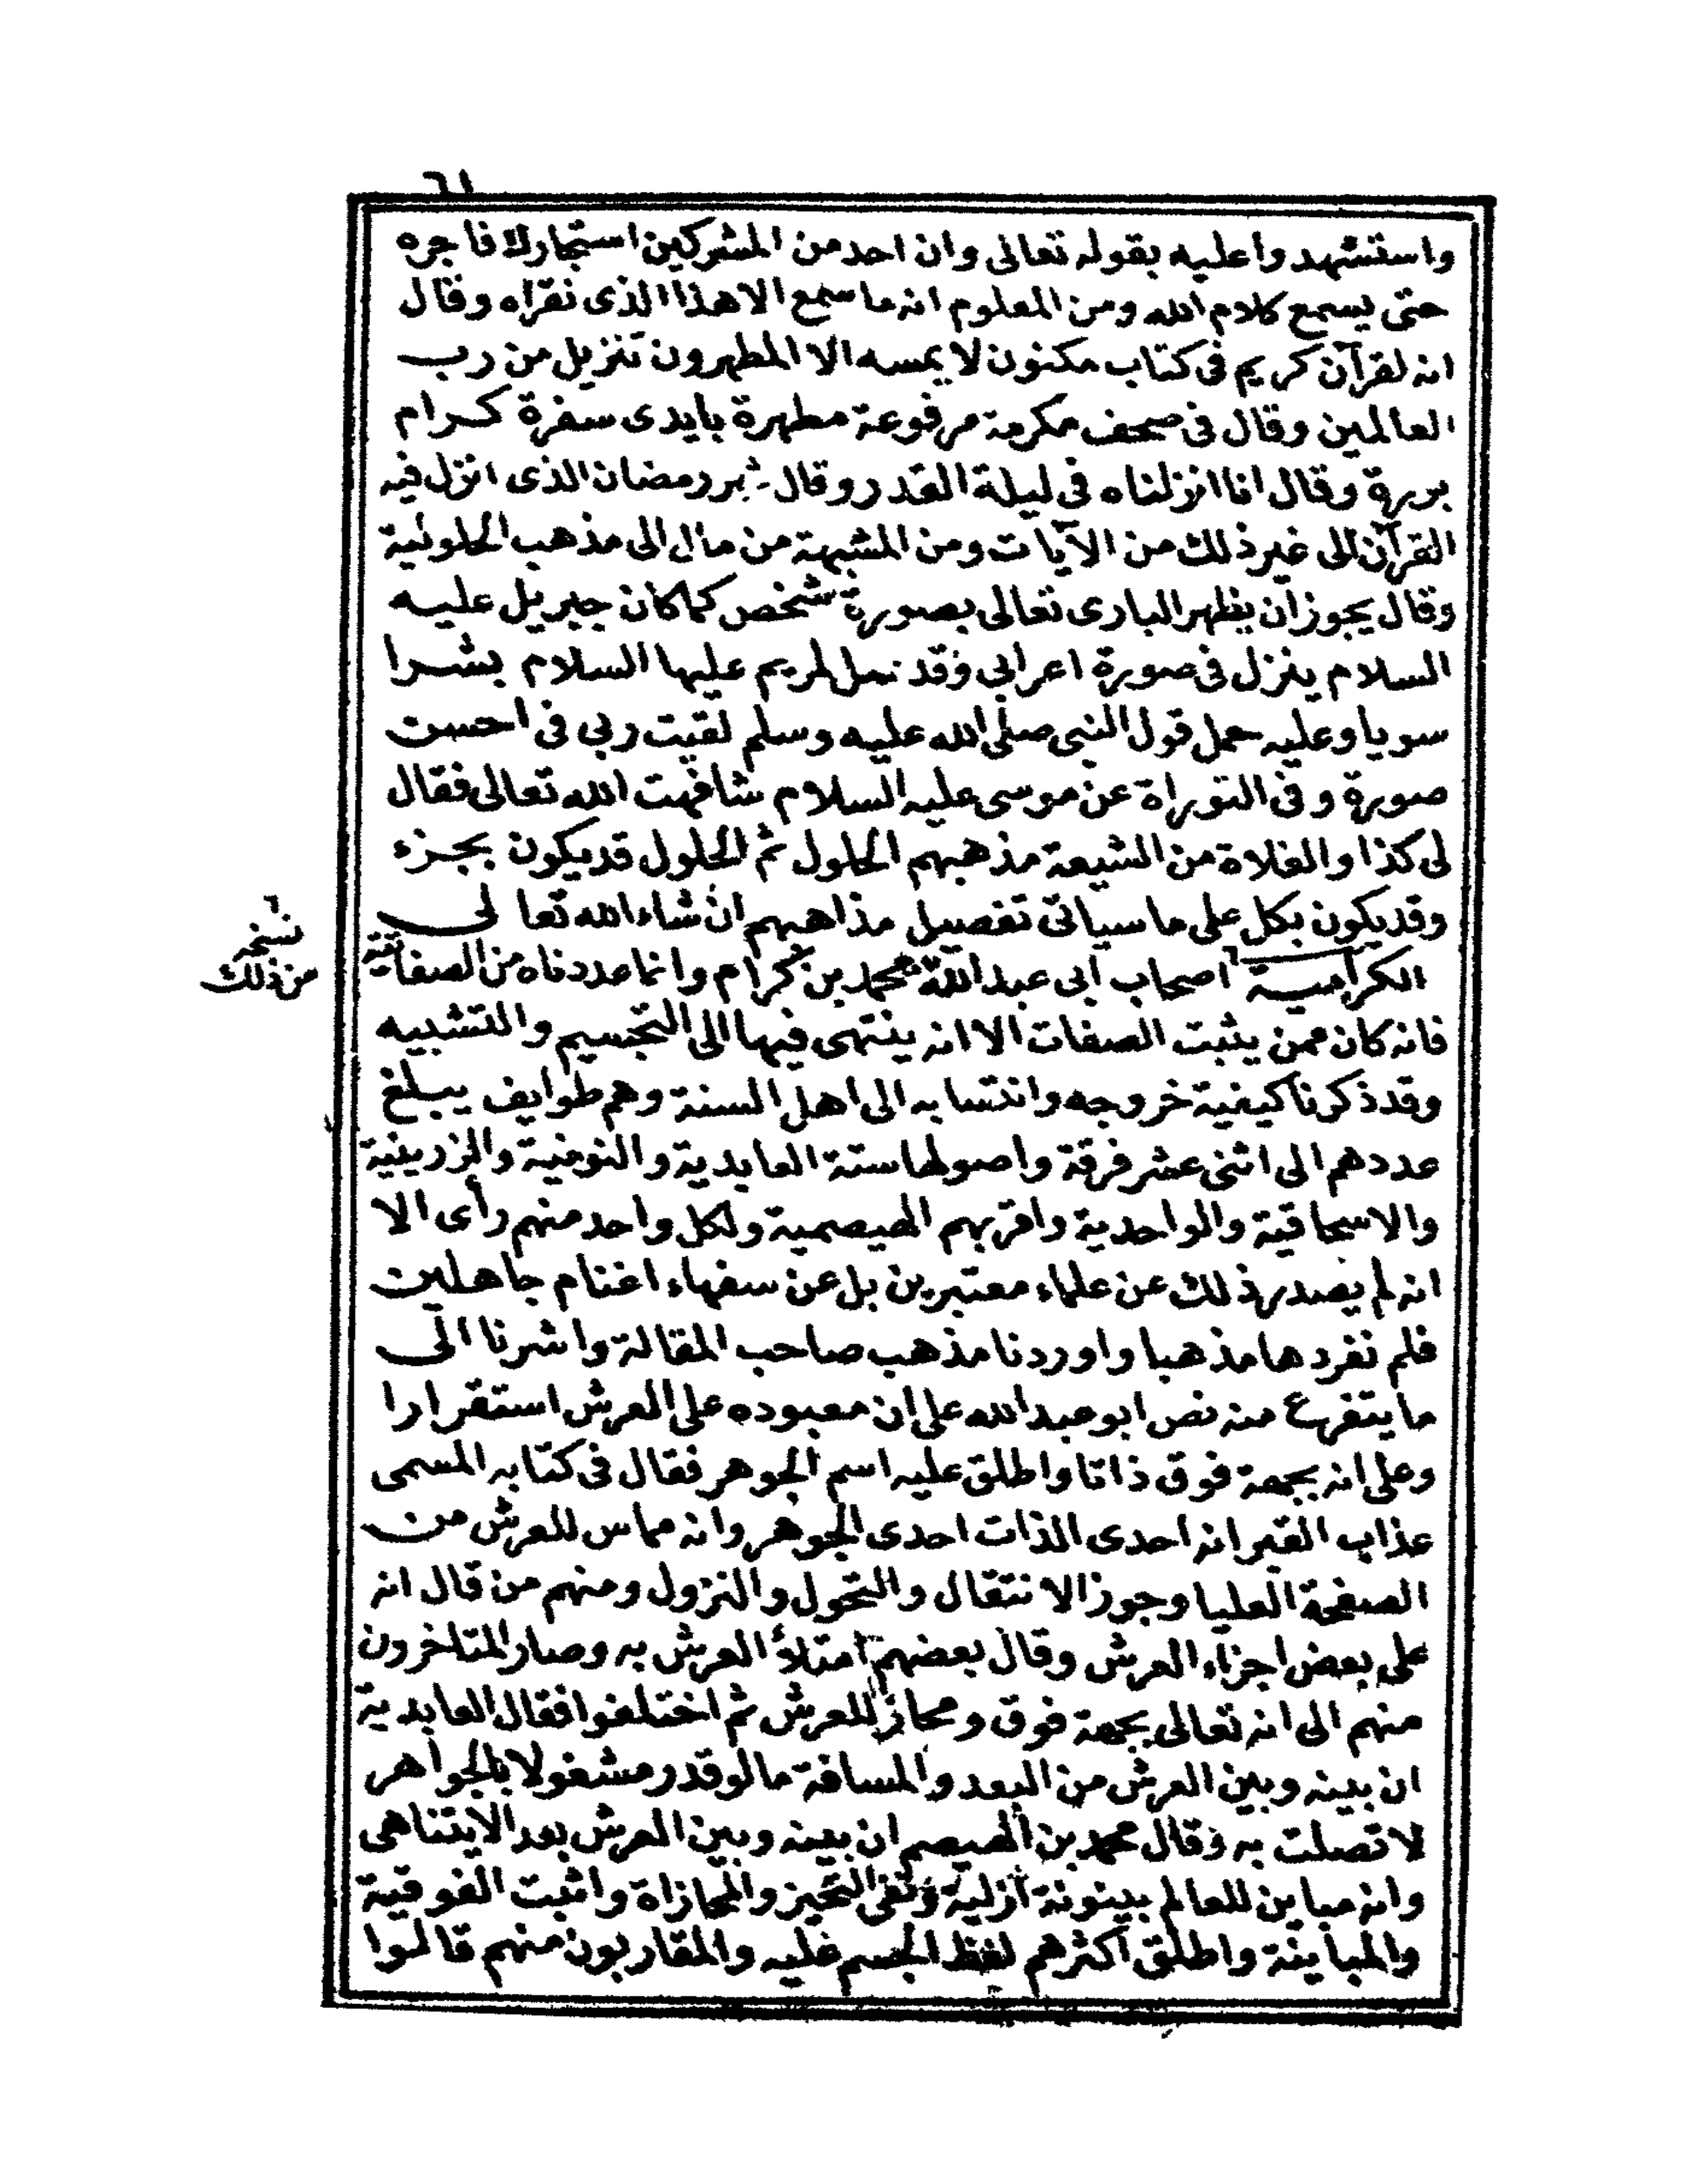 ٦١
واستشهدوا عليه بقوله تعالى وان احد من المشركين استجارك فاجره
حتى يسمع كلام الله ومن المعلوم انه ما سمع الا هذا الذى نقراه وقال
انه لقرآن كريم فى كتاب مكنون لا يمسه الا المطهرون تنزيل من رب
العالمين وقال فى صحف مكرمة مرفوعة مطهرة بايدى سفرة كرام
بررة وقال انا انزلناه فى ليلة القدر وقال شهر رمضان الذى انزل فيه
القرآن الى غير ذلك من الآيات ومن المشبهة من مال الى مذهب الحلولية
وقال يجوز ان يظهر البارى تعالى بصورة شخص كما كان جبريل عليه
السلام ينزل فى صورة اعرابي وقد تمثل لمريم عليها السلام بشرا
سويا وعليه حمل قول النبى صلى الله عليه وسلم لقيت ربي فى احسن
صورة وفى التوراة عن موسى عليه السلام شافهت الله تعالى فقال
لى كذا والغلاة من الشيعة مذهبهم الحلول ثم الحلول قد يكون بجزء
وقد يكون بكل على ما سياتى تفصيل مذاهبهم ان شاء الله تعالى
الكرامية ٦ اصحاب ابى عبد الله محمد بن كرام وانما عددناه من الصفاتية
٦ نسخه
من ذلك
فانه كان ممن يثبت الصفات الا انه ينتهى فيها الى التجسيم والتشبيه
وقد ذكرنا كيفية خروجه وانتسابه الى اهل السنة وهم طوايف يبلغ
عددهم الى اثنى عشر فرقة واصولها ستة العابدية والنونية والزرينية
والاسحاقية والواحدية واقربهم الهيصمية ولكل واحد منهم رأى الا
انه لم يصدر ذلك عن علماء معتبرين بل عن سفهاء اغتام جاهلين
فلم نفردها مذهبا واوردنا مذهب صاحب المقالة واشرنا الى
ما يتفرع منه نص ابو عبد الله على ان معبوده على العرش استقرارا
وعلى انه بجهة فوق ذاتا واطلق عليه اسم الجوهر فقال فى كتابه المسمى
عذاب القبر انه احدى الذات احدى الجوهر وانه مماس للعرش من
الصفحة العليا وجوز الانتقال والتحول والنزول ومنهم من قال انه
على بعض اجزاء العرش وقال بعضهم امتلأ العرش به وصار المتاخرون
منهم الى انه تعالى بجهة فوق ومحاز للعرش ثم اختلفوا فقال العابدية
ان بينه وبين العرش من البعد والمسافة ما لو قدر مشغولا بالجواهر
لاتصلت به وقال محمد بن الهيصم ان بينه وبين العرش بعد الايتناهى
وانه مباين للعالم بينونة ازلية ونفى التحيز والمحازاة واثبت الفوقية
والمباينة واطلق اكثرهم لفظ الجسم عليه والمقاربون منهم قالوا